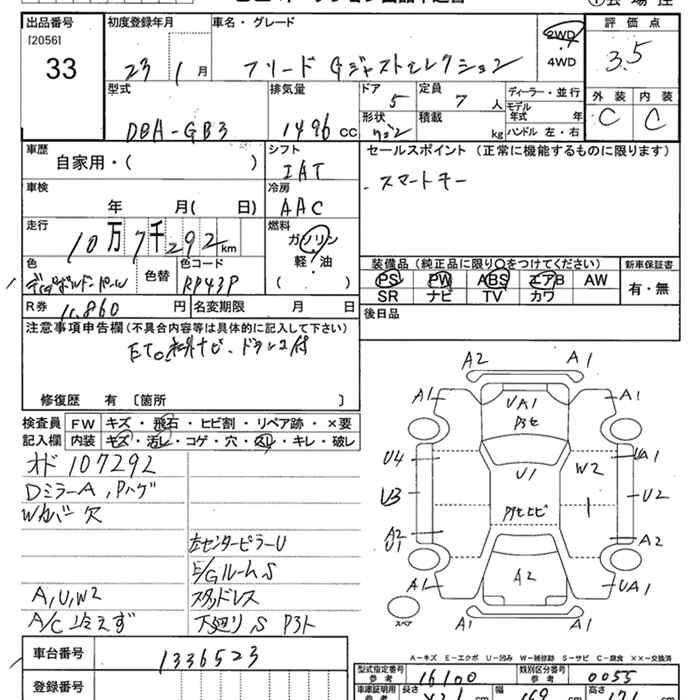 出品番号 初度登録年月 車名・グレード 評価点
[2056] 33
23 1月 フリード Gジャストセレクション 2WD 4WD 3.5
型式 排気量 ドア 定員 ディーラー・並行 外装 内装
DBA-GB3 1496 cc 5 7人 モデル年式 年 C C
形状 積載 kg ハンドル 左・右
車歴 シフト セールスポイント (正常に機能するものに限ります)
自家用・( ) IAT
・スマートキー
車検 冷房
年 月( 日) AAC
走行 燃料
10万7千292km ガソリン
軽・油
( )
色 色替 色コード
RP43P
装備品 (純正品に限り○をつけてください) 新車保証書
PS PW ABS エアB AW 有・無
SR ナビ TV カワ
R券 11,860円 名変期限 月 日 後日品
注意事項申告欄(不具合内容等は具体的に記入して下さい)
ETC、社外ナビ、ドラレコ付
修復歴 有 [箇所 ]
検査員 FW キズ・飛石・ヒビ割・リペア跡・×要
記入欄 内装 キズ・汚レ・コゲ・穴・スレ・キレ・破レ
オド 107292
DミラーA, Pハゲ
Wカバー欠
左センターピラーU
E/GルームS
A, U, W2 スタッドレス
A/C冷えず 下廻りS P3ト
A2 A1
A1 A1
UA1
U4 UA1
U1 W2
U3 U2
A2 A2
U1
A2
A1 UA1
A1 A1
スペア
A-キズ E-エクボ U-凹み W-補修跡 S-サビ C-腐食 ××-交換済
車台番号 1336523
型式指定番号 16100 類別区分番号 0055
登録番号
長さ 幅 高さ